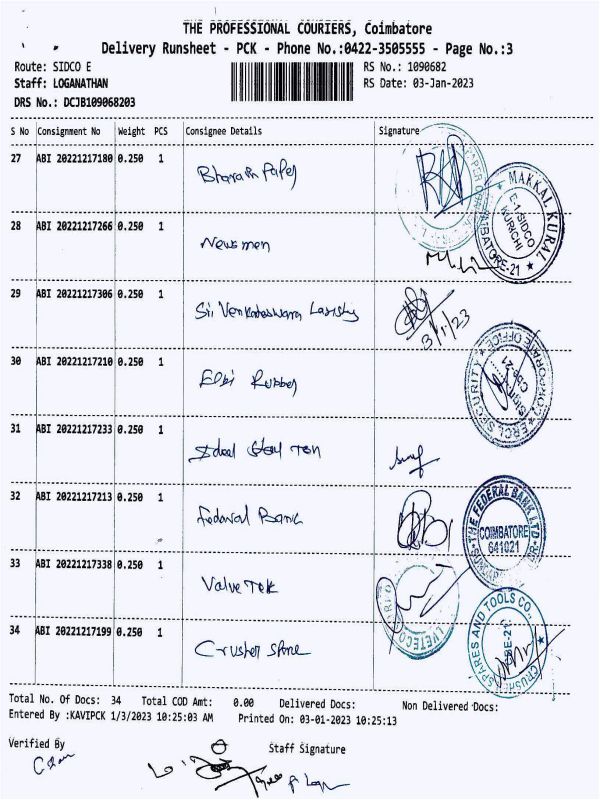 THE PROFESSIONAL COURIERS, Coimbatore
Delivery Runsheet - PCK - Phone No.:0422-3505555 - Page No.:3
Route: SIDCO E RS No.: 1090682
Staff: LOGANATHAN RS Date: 03-Jan-2023
DRS No.: DCJB109068203
S No Consignment No Weight PCS Consignee Details Signature
27 ABI 20221217180 0.250 1 Bharath
MAKKAL KURAL
E-1-SIDCO
KURICHI
28 ABI 20221217266 0.250 1 Newsmen
29 ABI 20221217306 0.250 1 Sri Venkateswara
3/1/23
30 ABI 20221217210 0.250 1 Elbi Rubber
31 ABI 20221217233 0.250 1 Ideal
32 ABI 20221217213 0.250 1 Federal Bank
THE FEDERAL BANK LTD
COIMBATORE
641021
33 ABI 20221217338 0.250 1 Valve Tek
34 ABI 20221217199 0.250 1 Crusher Spare
SPARES AND TOOLS CO.
Total No. Of Docs: 34 Total COD Amt: 0.00 Delivered Docs: Non Delivered Docs:
Entered By :KAVIPCK 1/3/2023 10:25:03 AM Printed On: 03-01-2023 10:25:13
Verified By Staff Signature